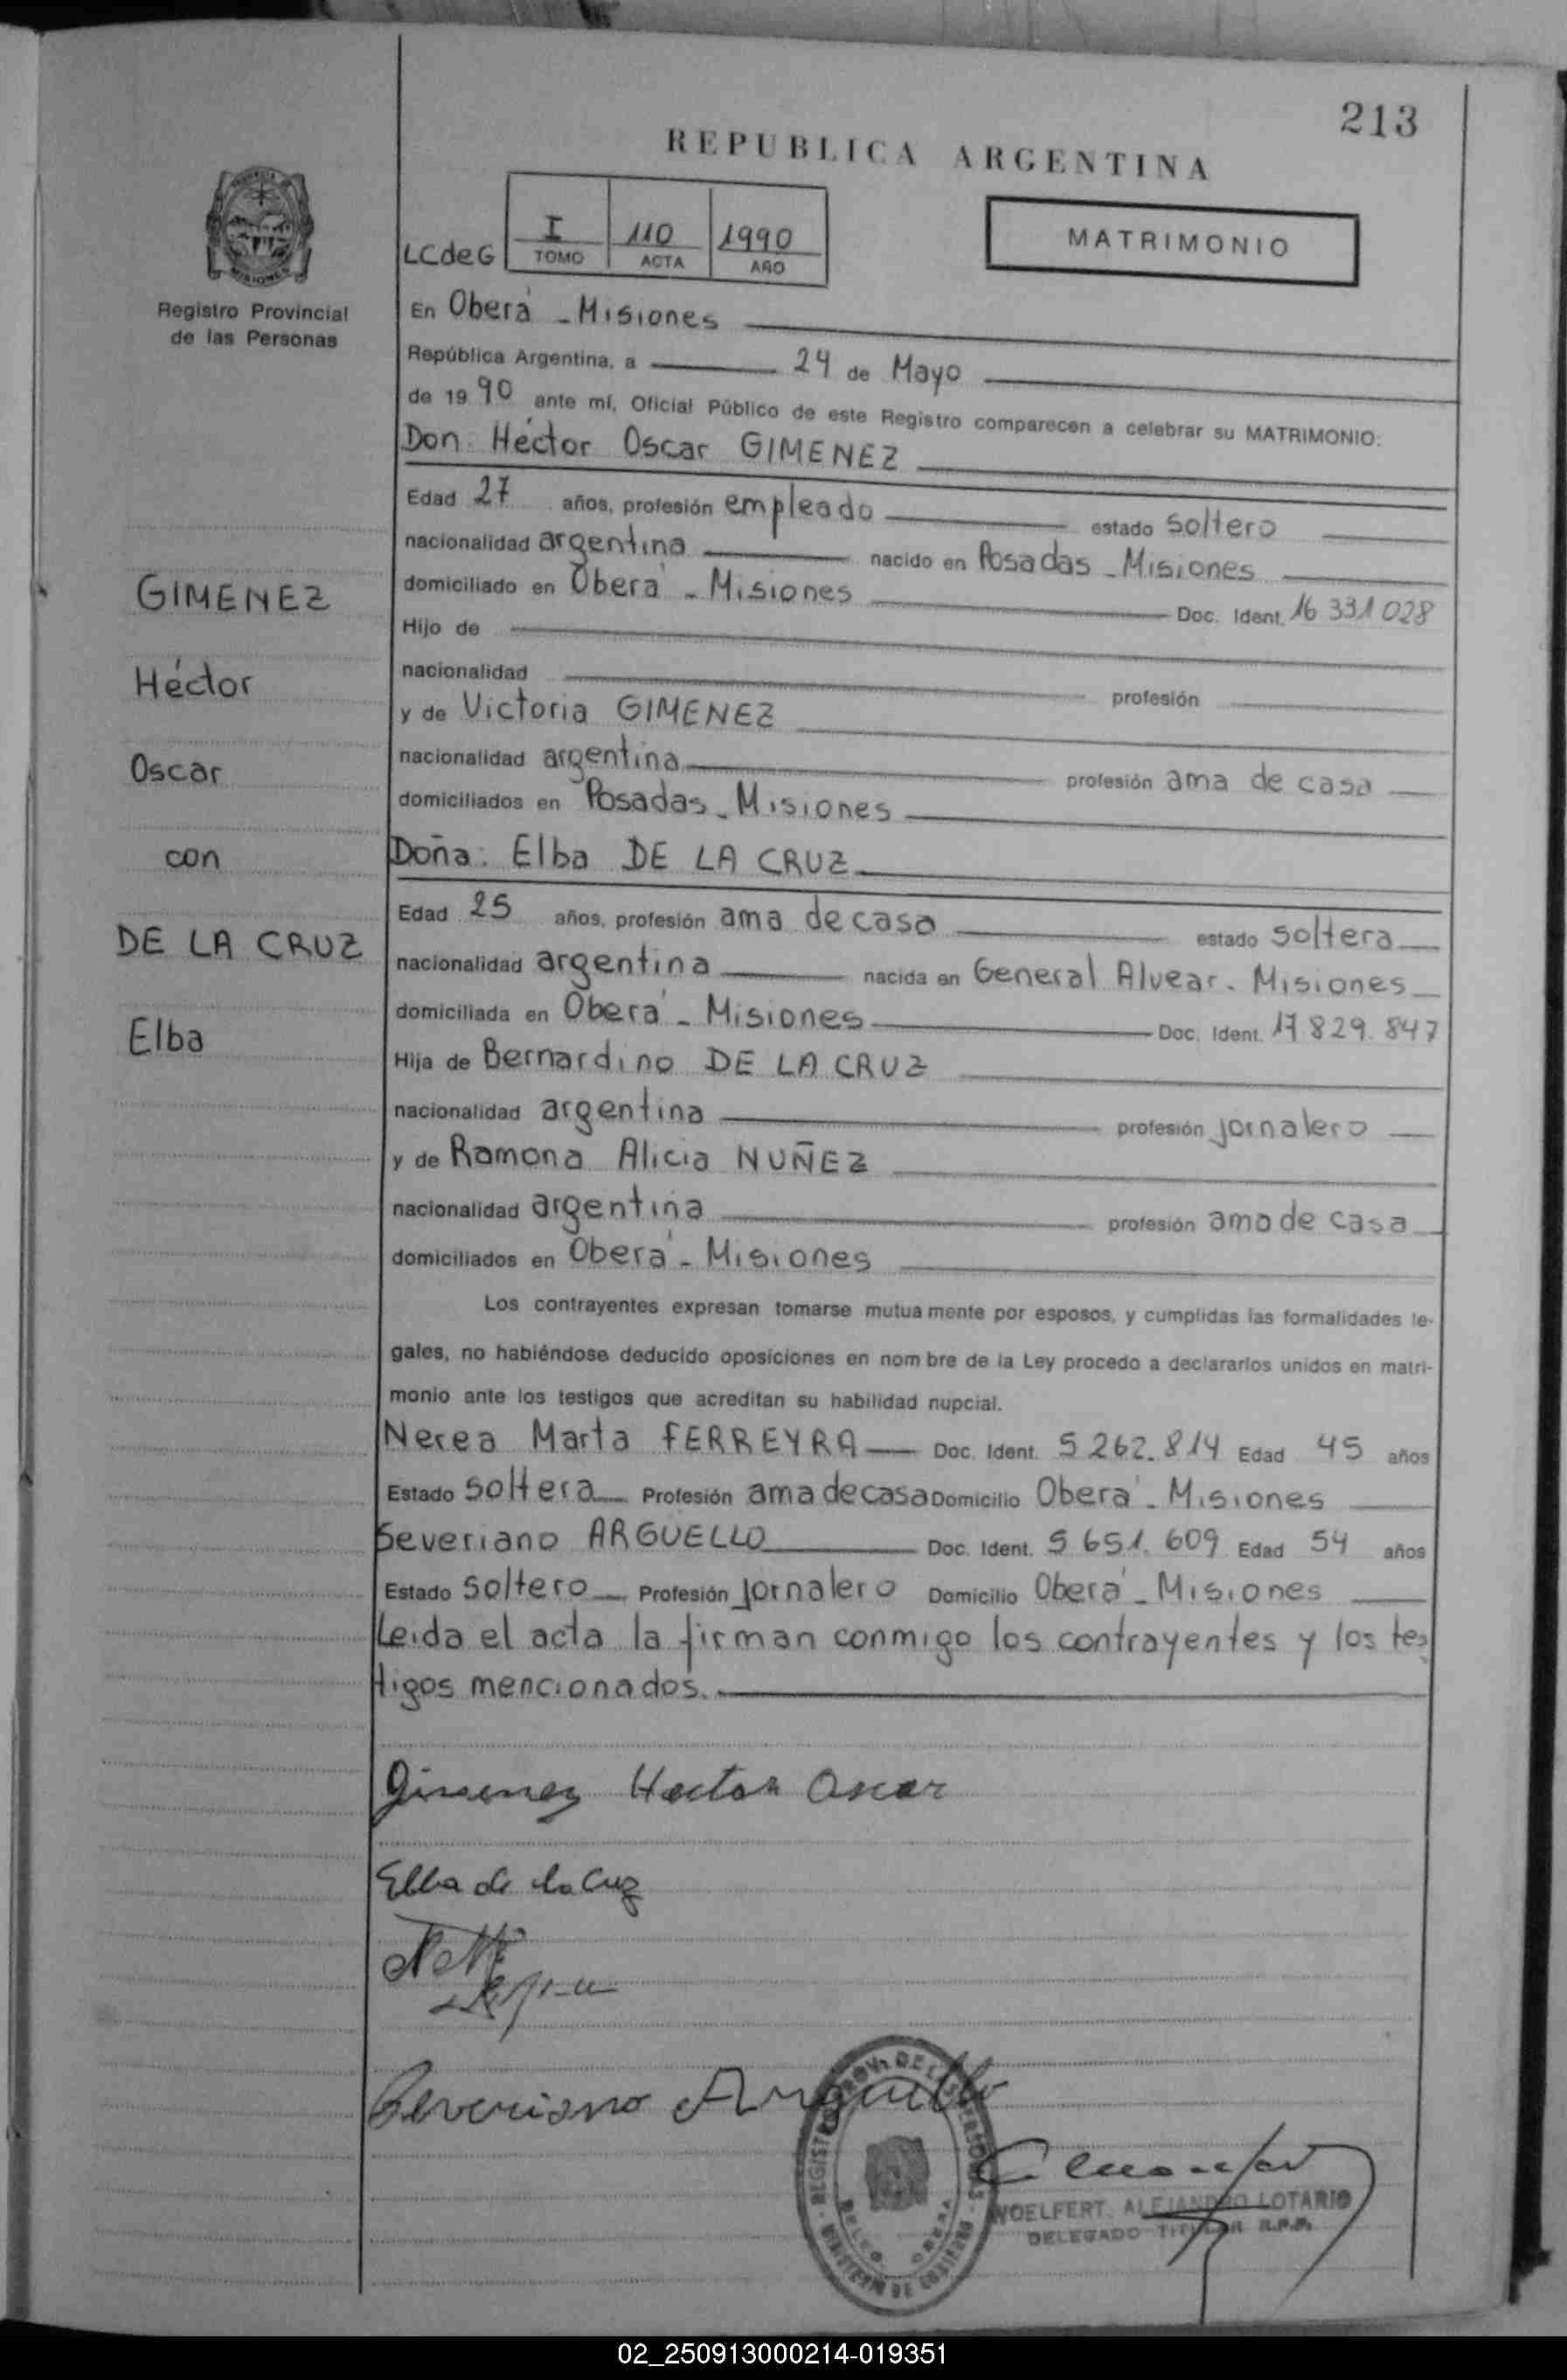 213
REPUBLICA ARGENTINA
LCdeG
I 110 1990
TOMO ACTA AÑO
MATRIMONIO
Registro Provincial
de las Personas
En Oberá - Misiones
República Argentina, a 24 de Mayo
de 19 90 ante mí, Oficial Público de este Registro comparecen a celebrar su MATRIMONIO:
Don: Héctor Oscar GIMENEZ
Edad 27 años, profesión empleado estado soltero
nacionalidad argentina nacido en Posadas - Misiones
domiciliado en Oberá - Misiones Doc. Ident. 16 331 028
Hijo de
nacionalidad profesión
y de Victoria GIMENEZ
nacionalidad argentina profesión ama de casa
domiciliados en Posadas - Misiones
Doña: Elba DE LA CRUZ
Edad 25 años, profesión ama de casa estado soltera
nacionalidad argentina nacida en General Alvear - Misiones
domiciliada en Oberá - Misiones Doc. Ident. 17.829.847
Hija de Bernardino DE LA CRUZ
nacionalidad argentina profesión jornalero
y de Ramona Alicia NUÑEZ
nacionalidad argentina profesión ama de casa
domiciliados en Oberá - Misiones
GIMENEZ
Héctor
Oscar
con
DE LA CRUZ
Elba
Los contrayentes expresan tomarse mutua mente por esposos, y cumplidas las formalidades le-
gales, no habiéndose deducido oposiciones en nom bre de la Ley procedo a declararlos unidos en matri-
monio ante los testigos que acreditan su habilidad nupcial.
Nerea Marta FERREYRA Doc. Ident. 5 262.814 Edad 45 años
Estado soltera Profesión ama de casa Domicilio Oberá - Misiones
Severiano ARGUELLO Doc. Ident. 5 651.609 Edad 54 años
Estado soltero Profesión jornalero Domicilio Oberá - Misiones
Leida el acta la firman conmigo los contrayentes y los tes
tigos mencionados.
Gimenez Hector Oscar
Elba de la Cruz
Severiano Arguello
WOELFERT, ALEJANDRO LOTARIO
DELEGADO TITULAR R.P.P.
02_250913000214-019351